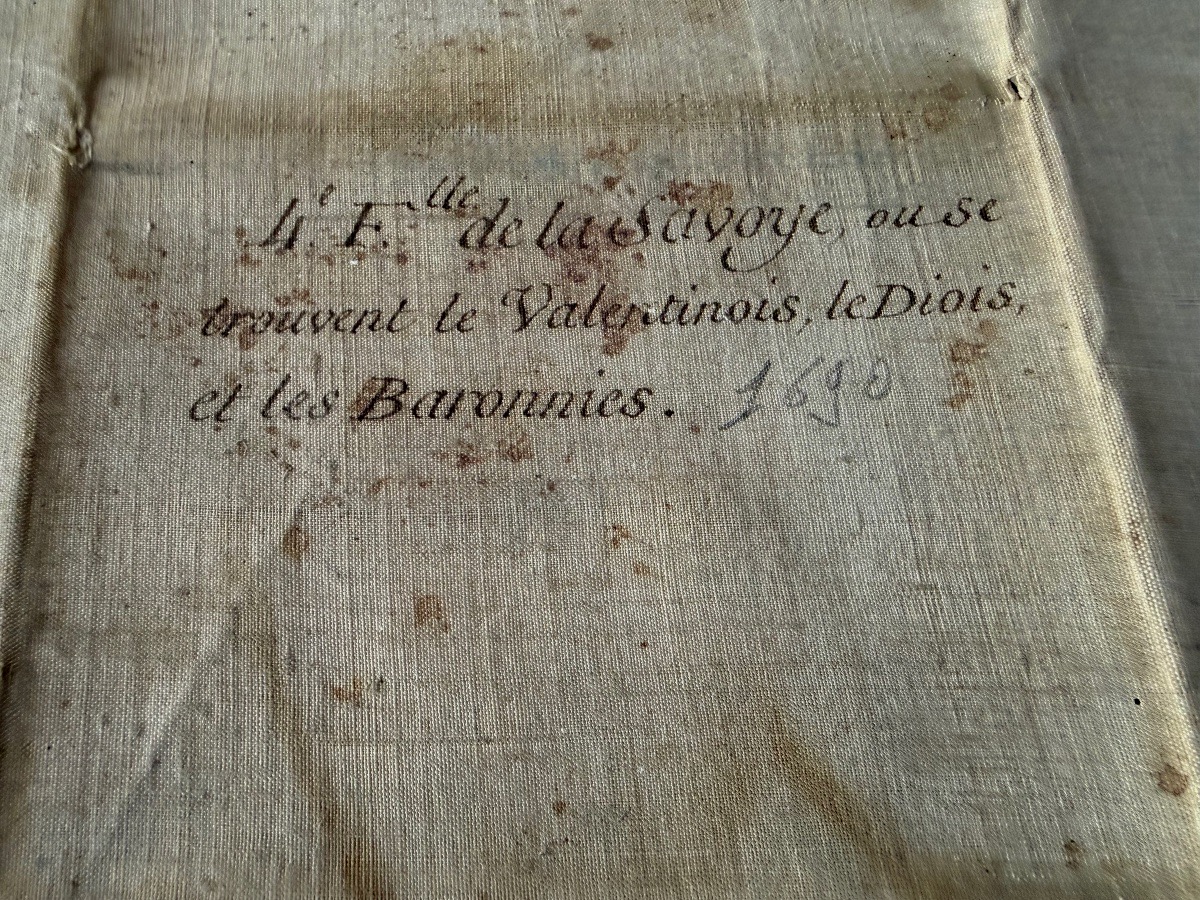 4.e F.lle de la Savoye, ou se
trouvent le Valentinois, le Diois,
et les Baronnies. 1690